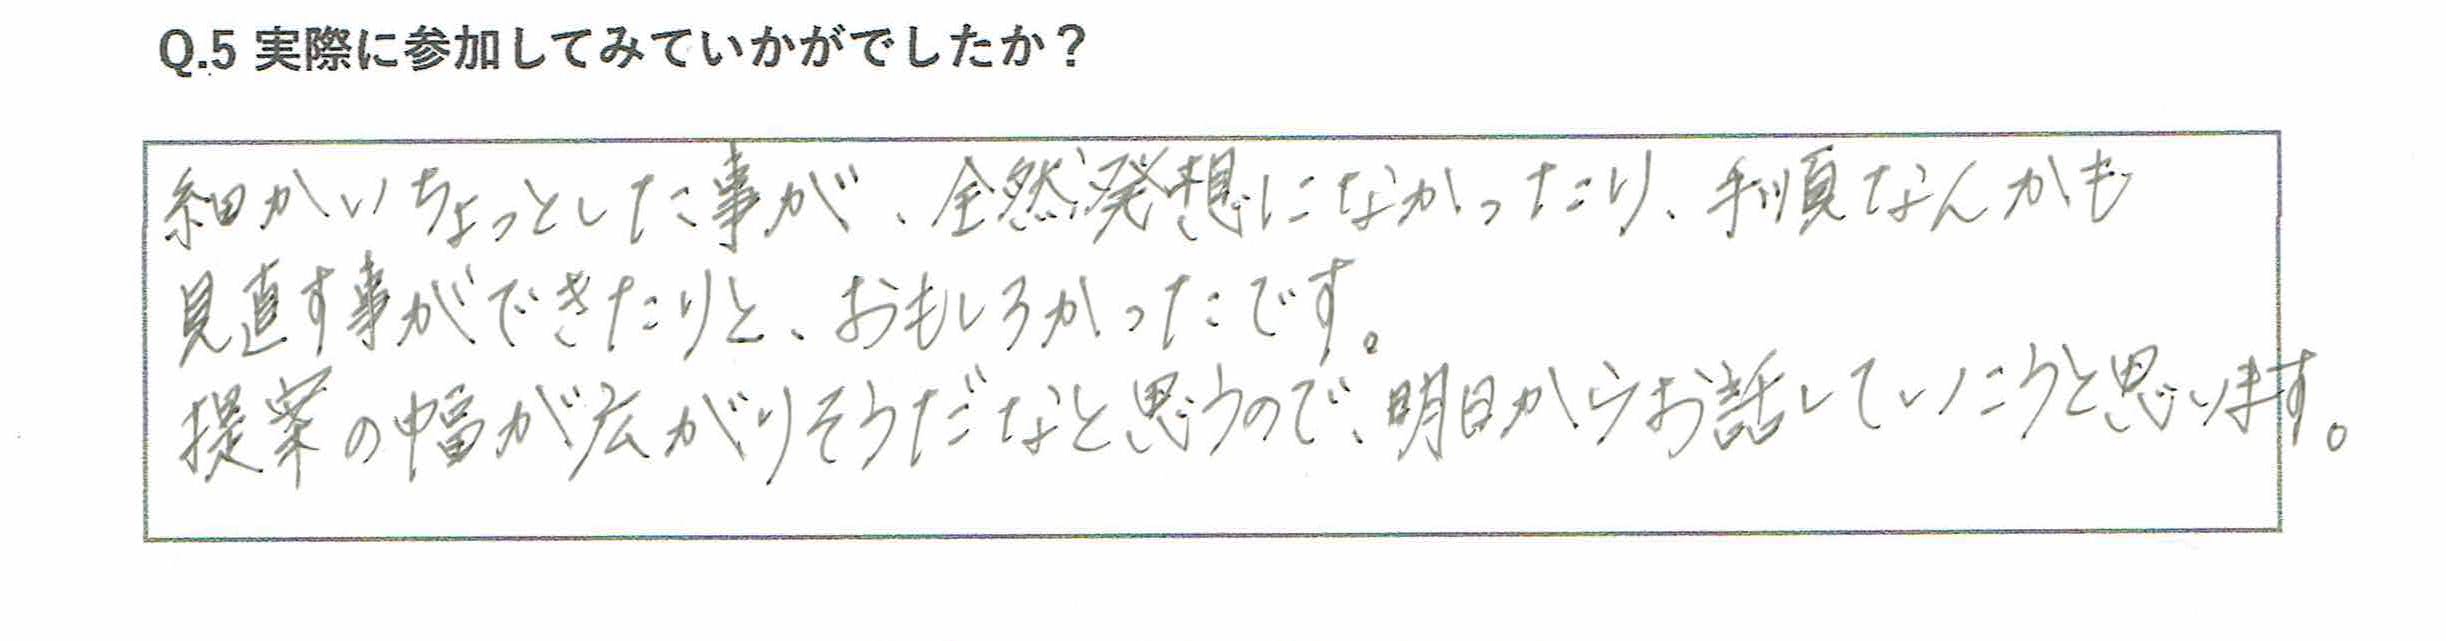 Q.5 実際に参加してみていかがでしたか？
細かいちょっとした事が、全然発想になかったり、手順なんかも
見直す事ができたりと、おもしろかったです。
提案の幅が広がりそうだなと思うので、明日からお話していこうと思います。